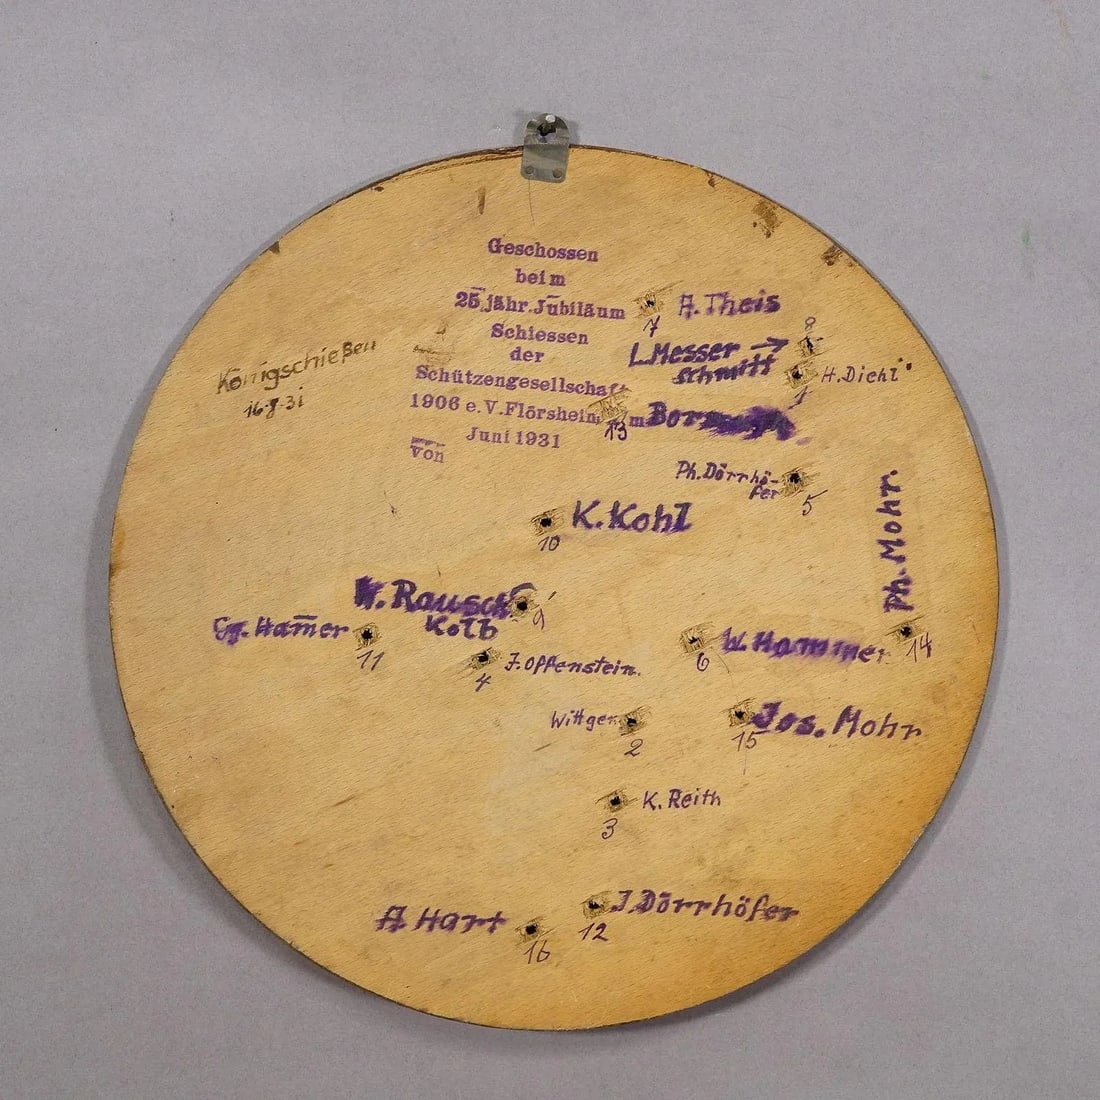 Geschossen
beim
25.jähr.Jubiläum
Schiessen
der
Schützengesellschaft
1906 e.V.Flörsheim m
Juni 1931
von
Königschießen
16.8.31
A. Theis
7
8
L. Messer →
schmitt
H. Diehl
1
13
Ph. Dörrhö-
fer
5
K. Kohl
10
Ph. Mohr.
14
W. Rausch
Kolb
9
Gg. Ham̅er
11
J. Offenstein.
4
W. Hammer
6
Wittgen
2
Jos. Mohr
15
K. Reith
3
J. Dörrhöfer
12
A Hart
16